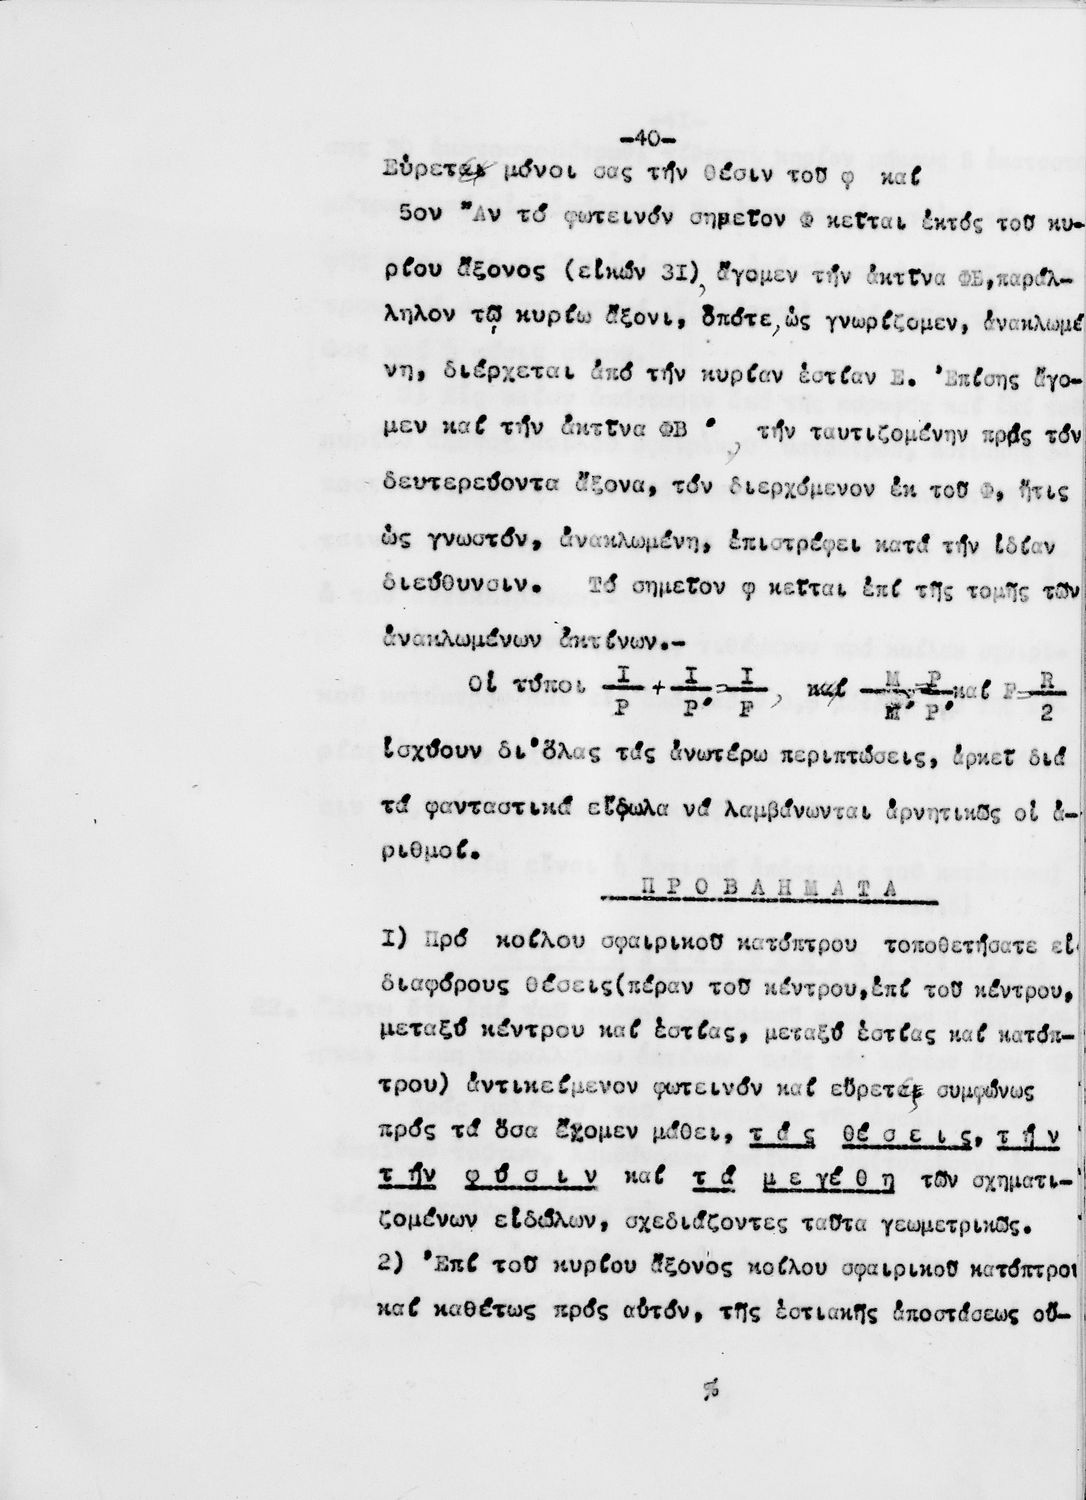 -40-
Εὕρεται μόνοι σας τήν θέσιν τοῦ φ καί
5ον "Αν τό φωτεινόν σημεῖον Φ κεῖται ἐκτός τοῦ κυ-
ρίου ἄξονος (εἰκών 3Ι), ἄγομεν τήν ἀκτῖνα ΦΒ, παράλ-
ληλον τῷ κυρίῳ ἄξονι, ὁπότε, ὡς γνωρίζομεν, ἀνακλωμέ
νη, διέρχεται ἀπό τήν κυρίαν ἑστίαν Ε. 'Επίσης ἄγο-
μεν καί τήν ἀκτῖνα ΦΒ ', τήν ταυτιζομένην πρός τόν
δευτερεύοντα ἄξονα, τόν διερχόμενον ἐκ τοῦ Φ, ἥτις
ὡς γνωστόν, ἀνακλωμένη, ἐπιστρέφει κατά τήν ἰδίαν
διεύθυνσιν. Τό σημεῖον φ κεῖται ἐπί τῆς τομῆς τῶν
ἀνακλωμένων ἀκτίνων.-
Οἱ τύποι Ι/Ρ + Ι/Ρ' = Ι/F, καί Μ/Μ' = Ρ/Ρ' καί F = R/2
ἰσχύουν δι'ὅλας τάς ἀνωτέρω περιπτώσεις, ἀρκεῖ διά
τά φανταστικά εἴδωλα νά λαμβάνωνται ἀρνητικῶς οἱ ἀ-
ριθμοί.
Π Ρ Ο Β Λ Η Μ Α Τ Α
Ι) Πρό κοίλου σφαιρικοῦ κατόπτρου τοποθετήσατε εἰ
διαφόρους θέσεις(πέραν τοῦ κέντρου, ἐπί τοῦ κέντρου,
μεταξύ κέντρου καί ἑστίας, μεταξύ ἑστίας καί κατόπ-
τρου) ἀντικείμενον φωτεινόν καί εὕρετε συμφώνως
πρός τά ὅσα ἔχομεν μάθει, τ ά ς θ έ σ ε ι ς, τ ή ν
τ ήν φ ύ σ ι ν καί τ ά μ ε γέ θ η τῶν σχηματι-
ζομένων εἰδώλων, σχεδιάζοντες ταῦτα γεωμετρικῶς.
2) 'Επί τοῦ κυρίου ἄξονος κοίλου σφαιρικοῦ κατόπτρου
καί καθέτως πρός αὐτόν, τῆς ἑστιακῆς ἀποστάσεως οὔ-